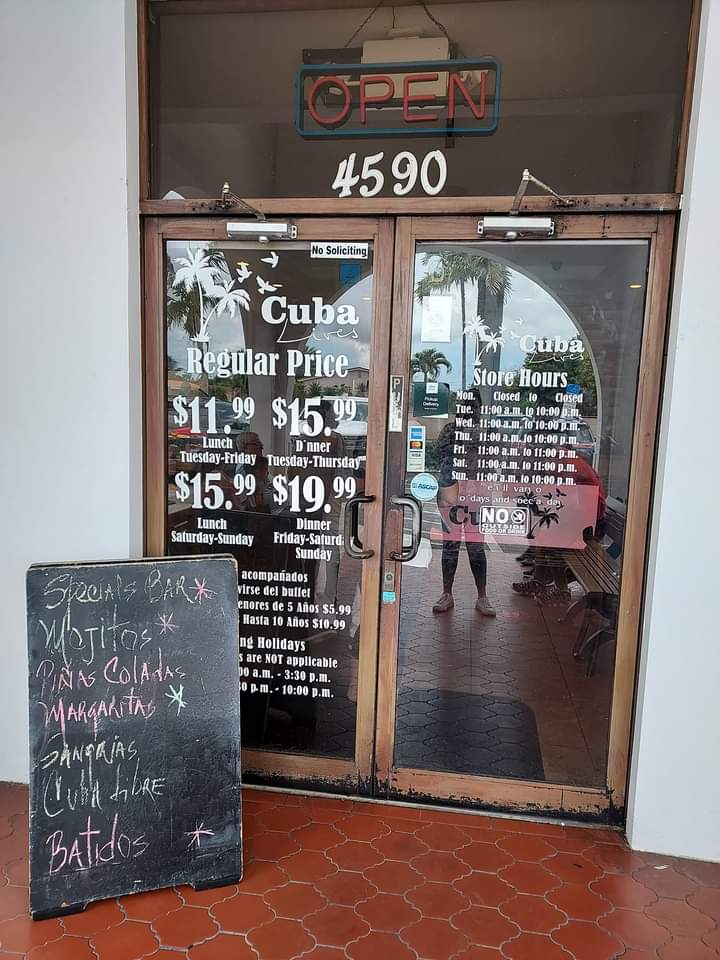 OPEN
4590
No Soliciting
Cuba
Lives
Regular Price
$11.99 $15.99
Lunch D'nner
Tuesday-Friday Tuesday-Thursday
$15.99 $19.99
Lunch Dinner
Saturday-Sunday Friday-Saturd
Sunday
acompañados
virse del buffet
enores de 5 Años $5.99
Hasta 10 Años $10.99
ng Holidays
s are NOT applicable
00 a.m. - 3:30 p.m.
p.m. - 10:00 p.m.
Cuba
Lives
Store Hours
Mon. Closed to Closed
Tue. 11:00 a.m. to 10:00 p.m.
Wed. 11:00 a.m. to 10:00 p.m.
Thu. 11:00 a.m. to 10:00 p.m.
Fri. 11:00 a.m. to 11:00 p.m.
Sat. 11:00 a.m. to 11:00 p.m.
Sun. 11:00 a.m. to 10:00 p.m.
Cu
NO
OUTSIDE
FOOD OR DRINK
Pickup
Delivery
VISA
ASCAP
Specials BAR
Mojitos
Piñas Coladas
Margaritas
Sangrias
Cuba Libre
Batidos